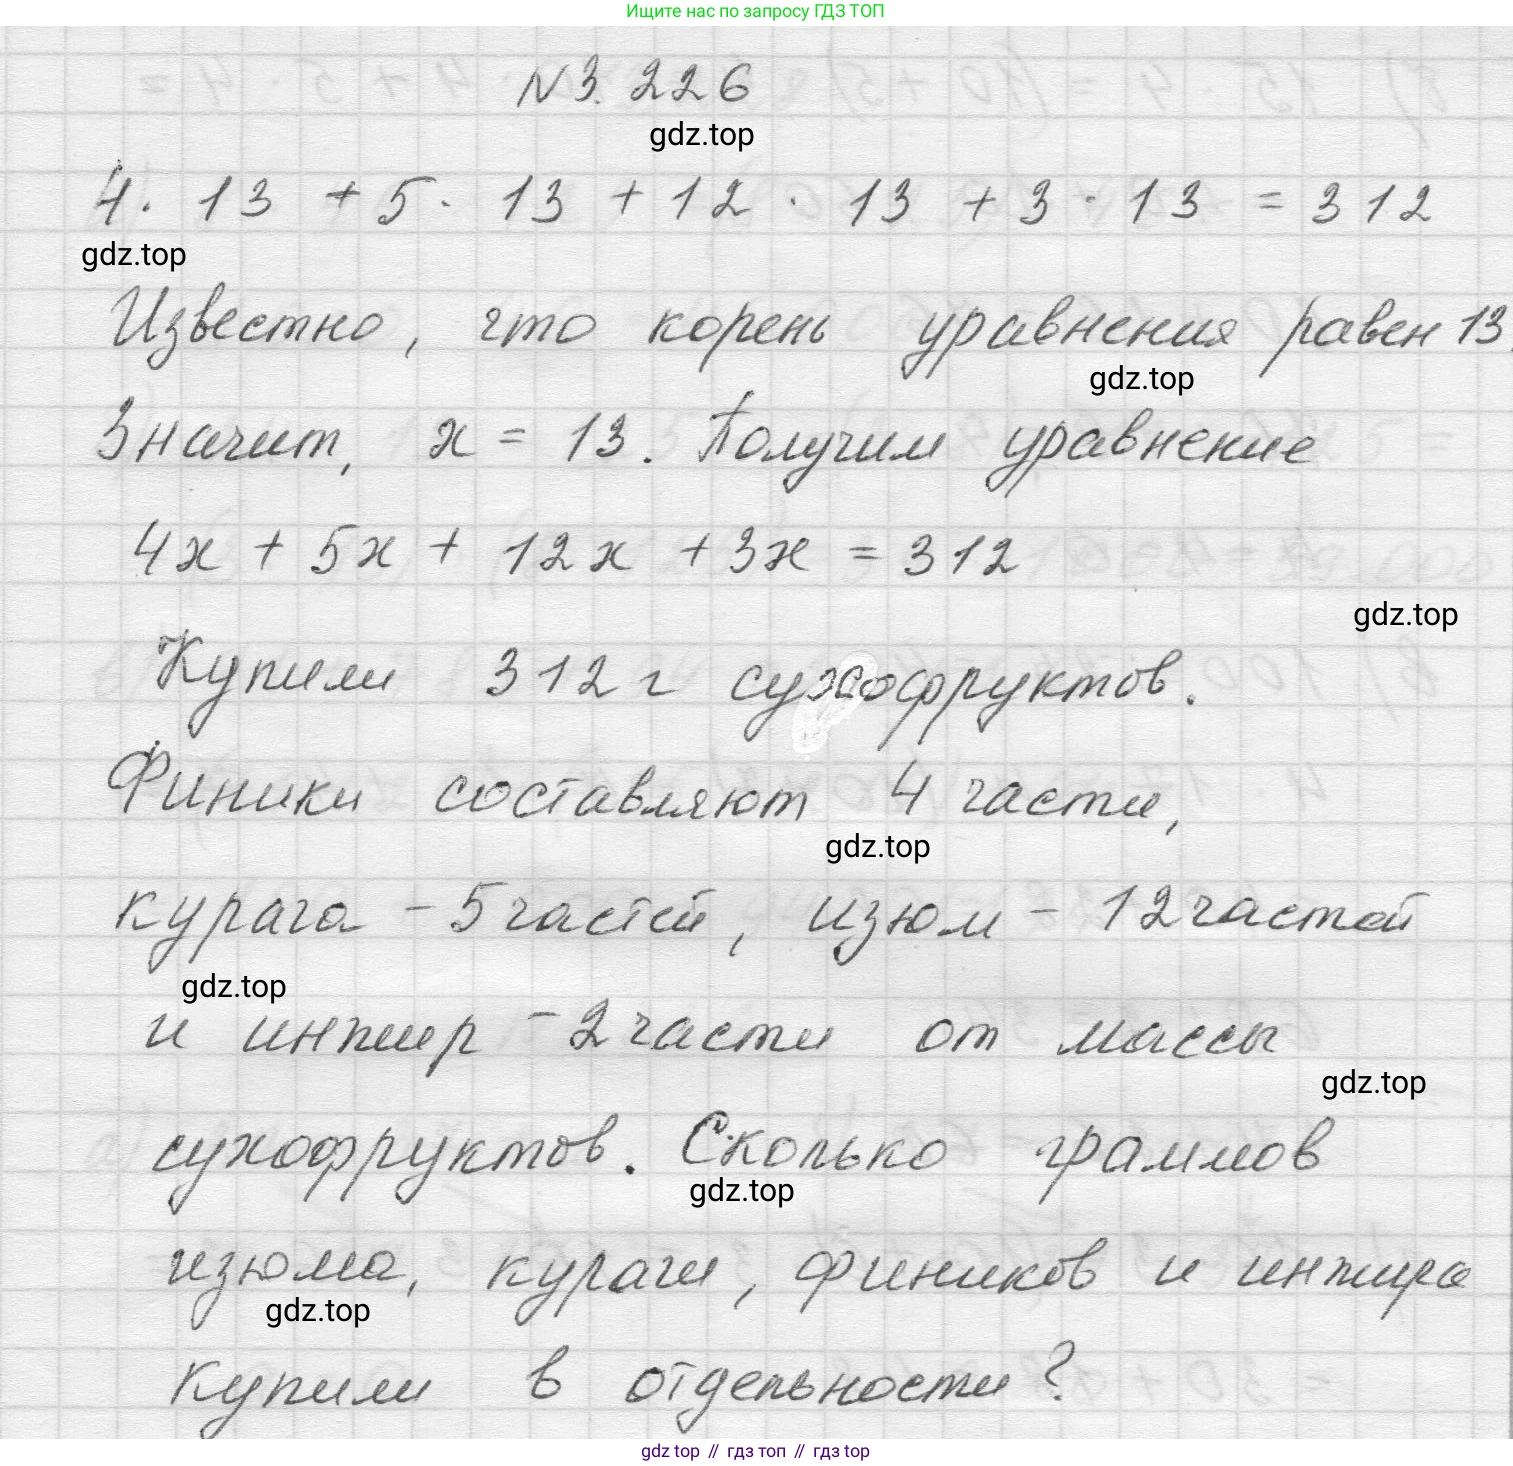 Ищите нас по запросу ГДЗ ТОП
№3.226
gdz.top
4 · 13 + 5 · 13 + 12 · 13 + 3 · 13 = 312
gdz.top
Известно, что корень уравнения равен 13.
gdz.top
Значит, x = 13. Получим уравнение
4x + 5x + 12x + 3x = 312
gdz.top
Купили 312 г сухофруктов.
Финики составляют 4 части,
gdz.top
курага – 5 частей, изюм – 12 частей
gdz.top
и инжир – 2 части от массы
gdz.top
сухофруктов. Сколько граммов
gdz.top
изюма, кураги, фиников и инжира
gdz.top
купили в отдельности?
gdz top // гдз топ // gdz.top